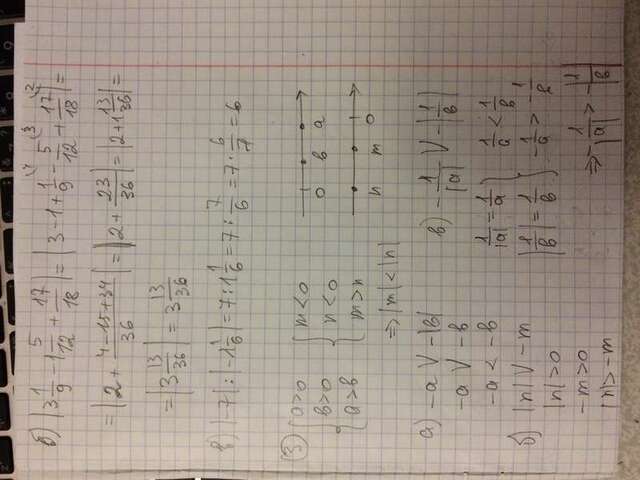 б) |3 1/9 - 1 5/12 + 17/18| = |3 - 1 + 1/9 - 5/12 + 17/18| =
= |2 + (4 - 15 + 34)/36| = |2 + 23/36| = |2 + 1 13/36| =
= |3 13/36| = 3 13/36
в) |-7| : |-1 1/6| = 7 : 1 1/6 = 7 : 7/6 = 7 · 6/7 = 6
③ { a > 0
b > 0
a > b
{ m < 0
n < 0
m > n
⇒ |m| < |n|
0 b a
n m 0
а) -a V -|b|
-a V -b
-a < -b
б) |n| V -m
|n| > 0
-m > 0
|n| > -m
в) -1/|a| V -|1/b|
1/|a| = 1/a
|1/b| = 1/b
1/a < 1/b
-1/a > -1/b
⇒ -1/|a| > -|1/b|